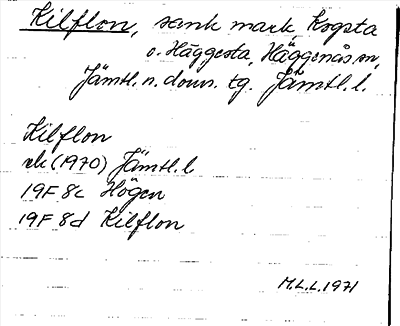 Kilflon, sank mark, Kogsta
o. Häggesta, Häggenås sn,
Jämtl. n. doms. tg. Jämtl. l.
Kilflon
ek (1970) Jämtl. l.
19F 8c Högen
19F 8d Kilflon
M.L.L. 1971